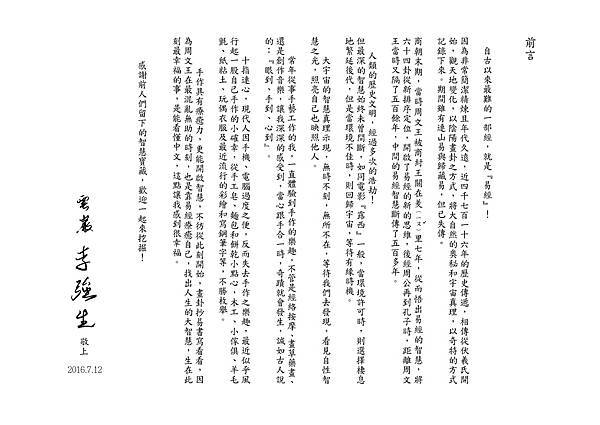 前言
自古以來最難的一部經，就是『易經』！
因為非常簡潔精煉且年代久遠，近四千七百一十六年的歷史傳遞，相傳從伏羲氏開
始，觀天地變化，以陰陽畫卦之方式，將大自然的奧秘和宇宙真理，以奇特的方式
記錄下來。期間雖有連山易與歸藏易，但已失傳。
商朝末期，當時周文王被商紂王關在羑（ㄧㄡˇ）里七年，從而悟出易經的智慧，將
六十四卦從新排序定位，開啟了易經的新的思維，後經周公再到孔子時，距離周文
王當時又隔了五百餘年，中間的易經智慧斷傳了五百多年。
人類的歷史文明，經過多次的浩劫！
但最深的智慧始終未曾間斷，如同電影『露西』一般，當環境許可時，則選擇棲息
地繁延後代，但是當環境不佳時，則回歸宇宙，等待有緣時機。
大宇宙的智慧真理示現，無時不刻，無所不在，等待我們去發現，看見自性智
慧之光，照亮自己也映照他人。
常年從事手藝工作的我，一直體驗到手作的樂趣，不管是經絡按摩、畫草藥畫、
還是創作音樂，讓我深深的感受到，當心跟手合一時，奇蹟就會發生，誠如古人說
的：『眼到、手到、心到』。
十指連心，現代人因手機、電腦過度之便，反而失去手作之樂趣，最近似乎風
行起一股自己手作的小確幸，從手工皂、麵包和餅乾小點心，木工、小傢俱、羊毛
氈、紙粘土、玩偶衣服及最近流行的彩繪和寫鋼筆字等，不勝枚舉。
手作具有療癒力，更能開啟智慧，不彷從此刻開始，畫卦抄易書寫看看，因
為周文王在最混亂無助的時刻，也是靠易經療癒自己，找出人生的大智慧，生在此
刻最幸福的事，是能看懂中文，這點讓我感到很幸福。
感謝前人們留下的智慧寶藏，歡迎一起來挖掘！
李強生
敬上
2016.7.12